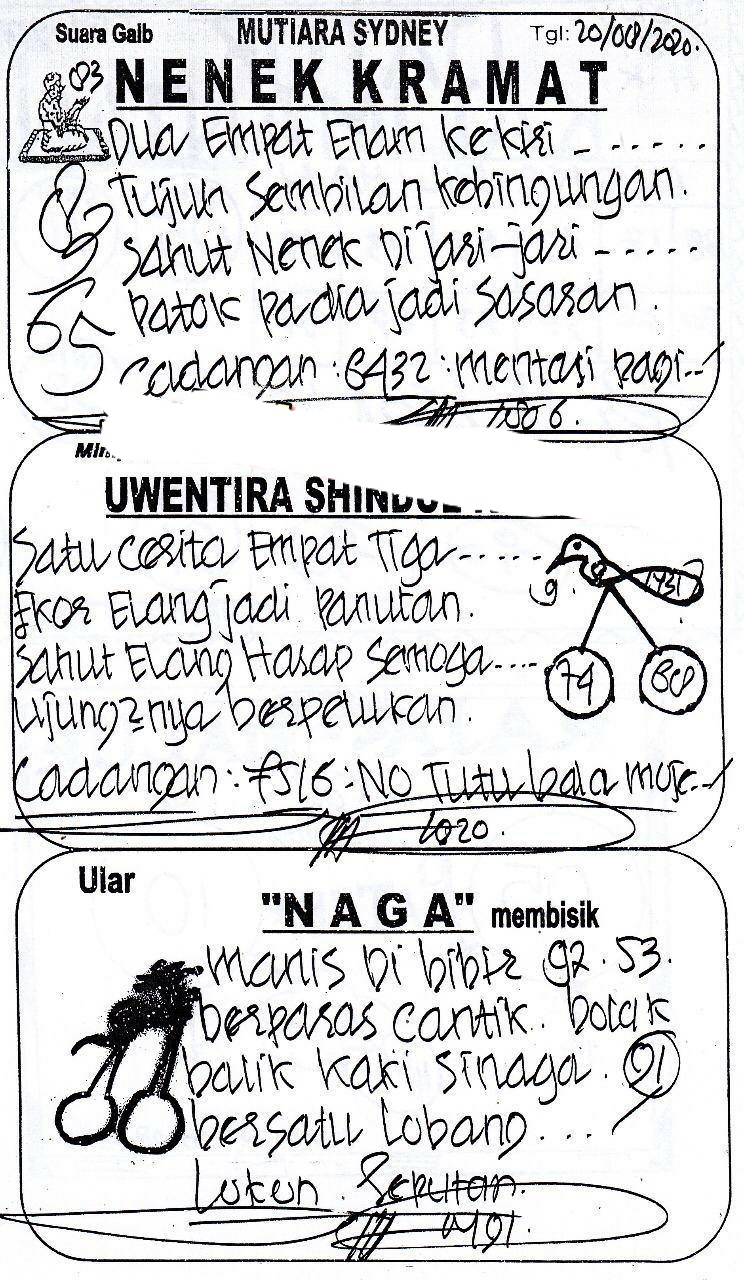 Suara Gaib MUTIARA SYDNEY Tgl: 20/08/2020.
03 NENEK KRAMAT
Dua Empat Enam kekiri - - - - - -
Tujuh Sembilan kebingungan.
Sahut Nenek Di jari-jari - - - - - -
Patok padia jadi Sasaran.
65
Cadangan : 6432 : mentari pagi..
UWENTIRA
Satu cerita Empat Tiga ......
Ekor Elang jadi Panutan.
9.
Sahut Elang Harap Semoga ....
74
Ujung2nya berpelukan.
Cadangan: 7516: No Tutu bala
1020.
Ular
"NAGA" membisik
Manis Di bibir 92. 53.
berparas cantik.. bolak
balik kaki Sinaga. 91
bersatu Lobang ....